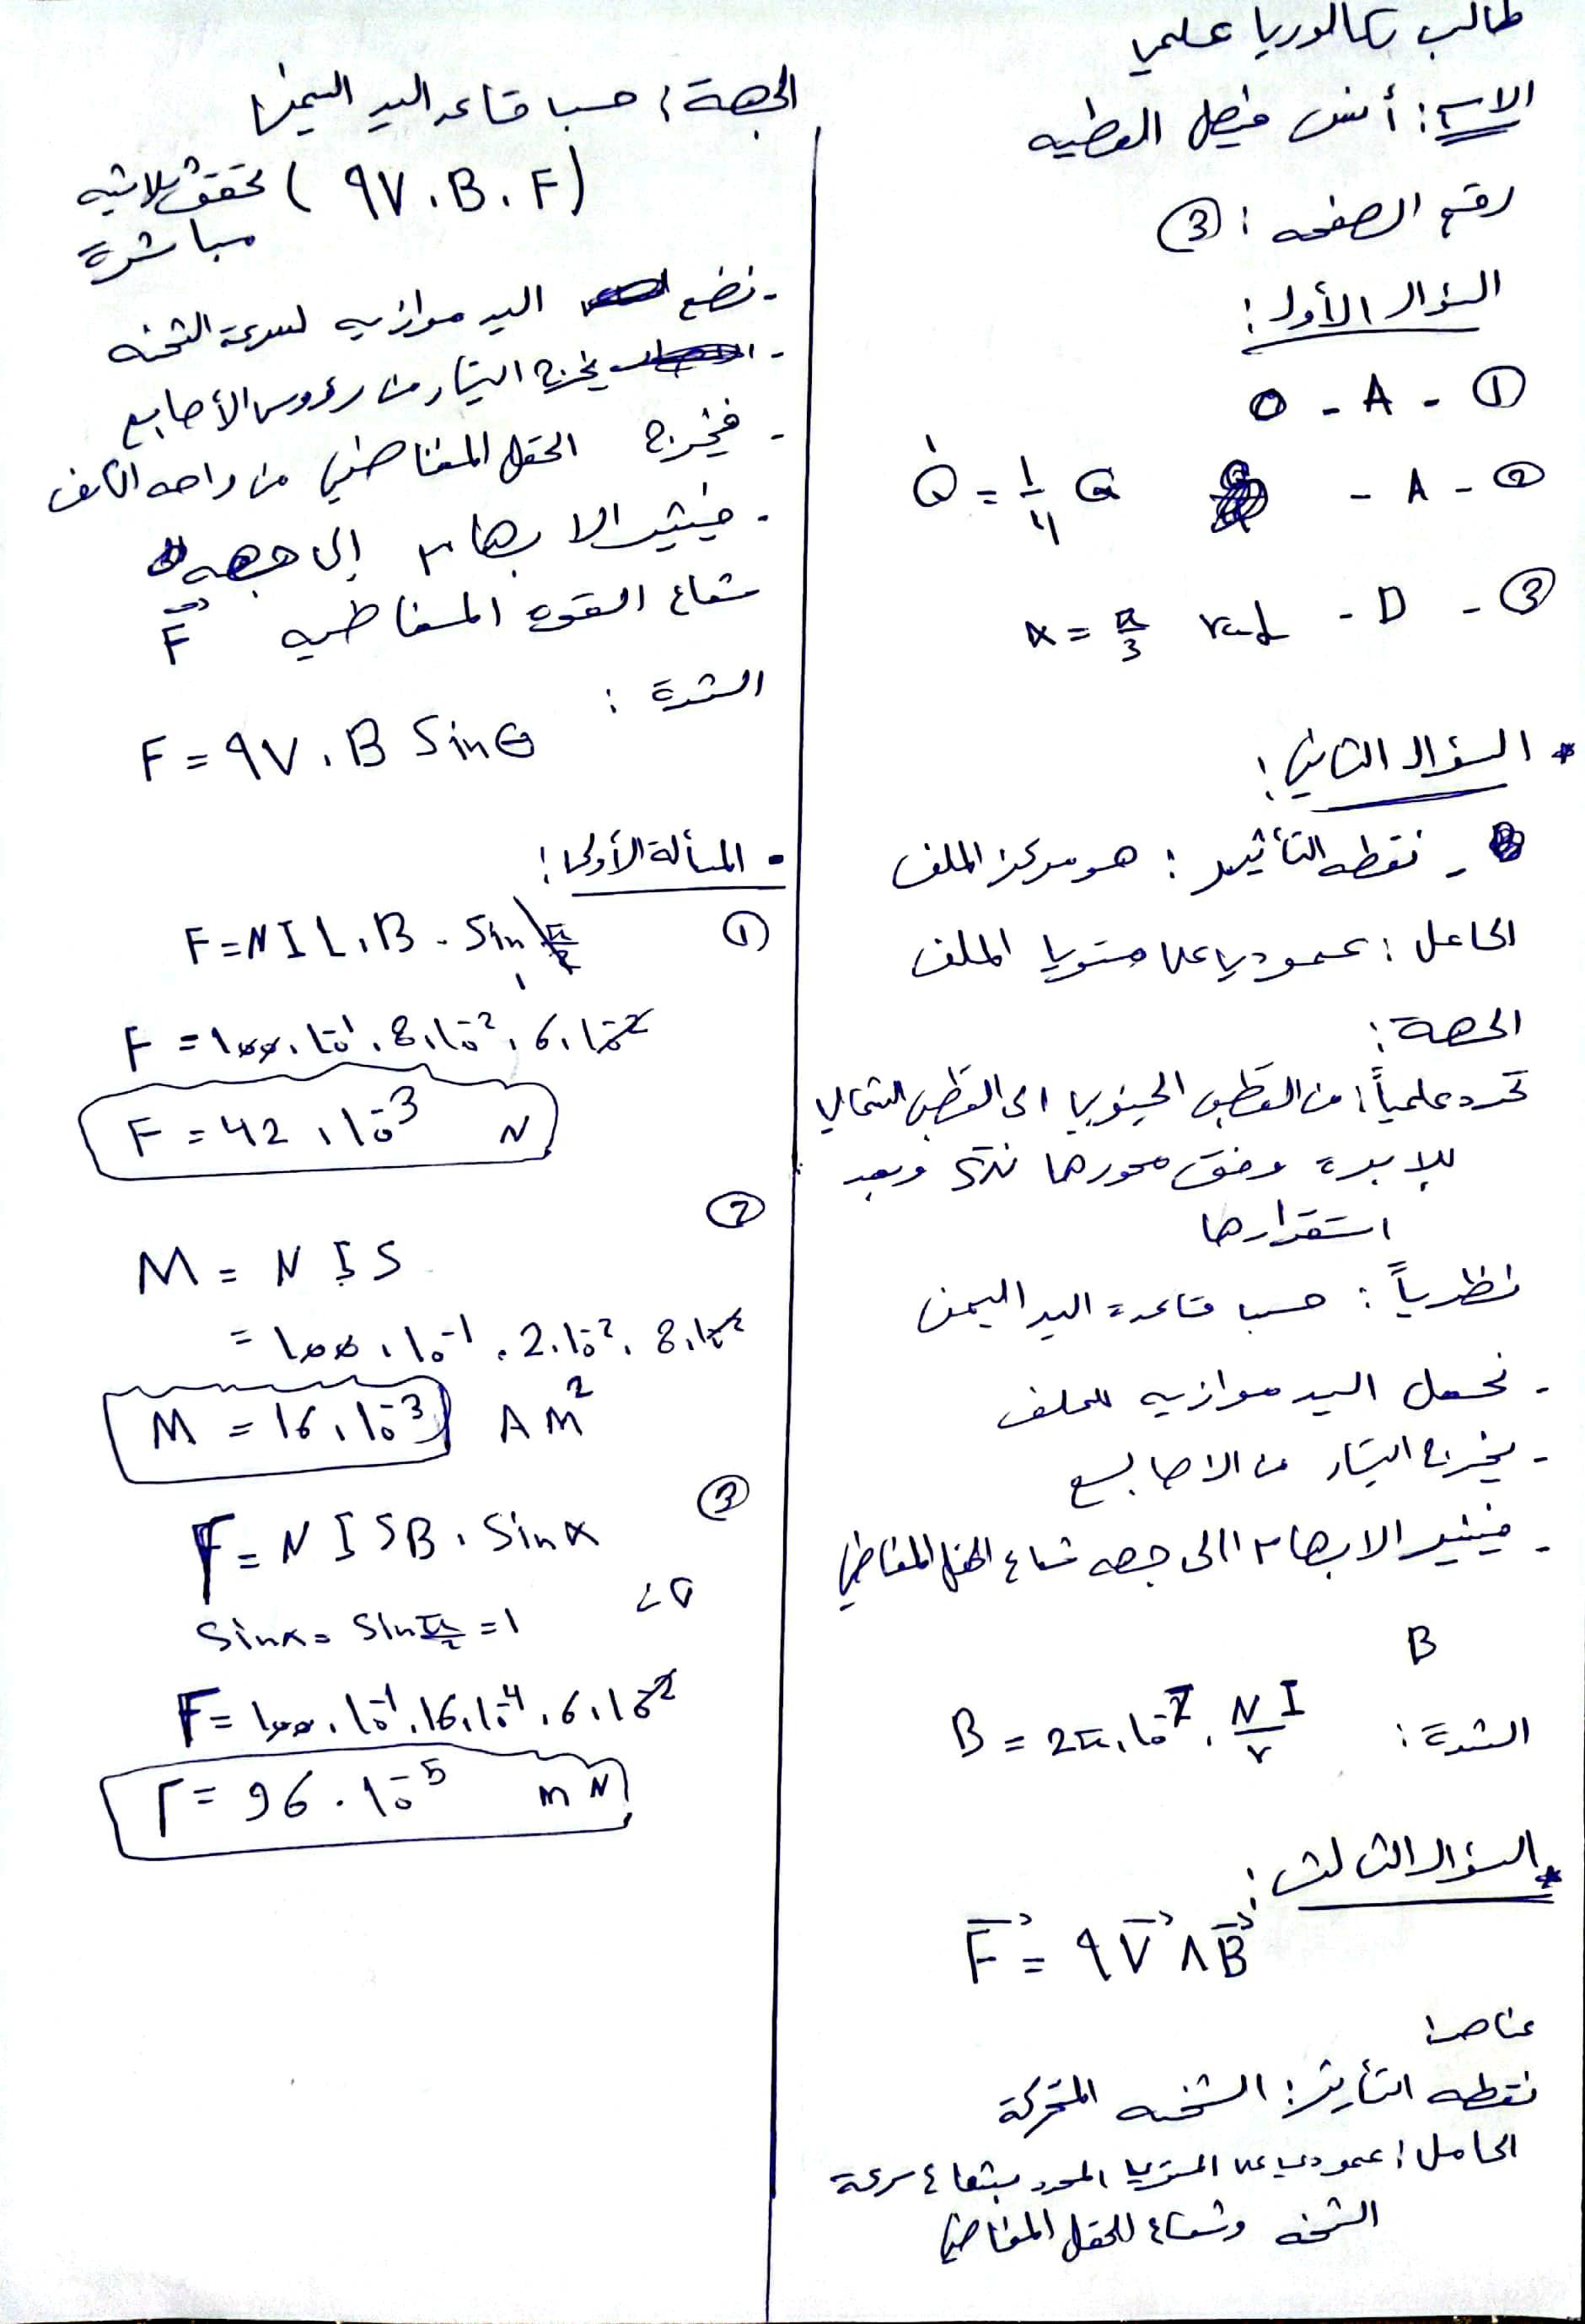 طالب بكالوريا علمي
الاسم: أنس فيصل العطيه
رقم الصفحه: ③
السؤال الأول:
① - A - 0
② - A - Q' = 1/4 Q
③ - D - α = π/3 rad
* السؤال الثاني:
- نقطه التأثير: هو مركز الملف
الحامل: عمودي على مستوي الملف
الجهة:
تحدد عملياً: من القطب الجنوبي الى القطب الشمالي
للإبرة وفق محورها بعد
استقرارها
نظرياً: حسب قاعدة اليد اليمنى
- نجعل اليد موازيه للملف
- يخرج التيار من الاصابع
- فيشير الابهام الى جهه شعاع الحقل المغناطيسي
B
الشدة: B = 2π.10⁻⁷. NI/r
* السؤال الثالث:
F⃗ = qV⃗ ∧ B⃗
عناصر
نقطه التأثير: الشحنه المتحركة
الحامل: عمودي على المستوي المحدد بشعاع سرعة
الشحنه وشعاع الحقل المغناطيسي
الجهة: حسب قاعد اليد اليمنى
(qV.B.F) تحقق ثلاثيه
مباشرة
- نضع اليد موازيه لسرعة الشحنه
- يخرج التيار من رؤوس الأصابع
- فيخرج الحقل المغناطيسي من راحه الكف
- فيشير الابهام إلى جهه
شعاع القوه المغناطيسيه F⃗
الشدة:
F = qV.B Sinθ
• المسألة الأولى:
①
F = N I L.B. Sin π/2
1
F = 100.10⁻¹.8.10⁻².6.10⁻²
F = 42.10⁻³ N
②
M = N I S
= 100.10⁻¹.2.10⁻².8.10⁻²
M = 16.10⁻³ A m²
③
Γ = N I S B. Sinα
Sinα = Sin π/2 = 1
Γ = 100.10⁻¹.16.10⁻⁴.6.10⁻²
Γ = 96.10⁻⁵ m N